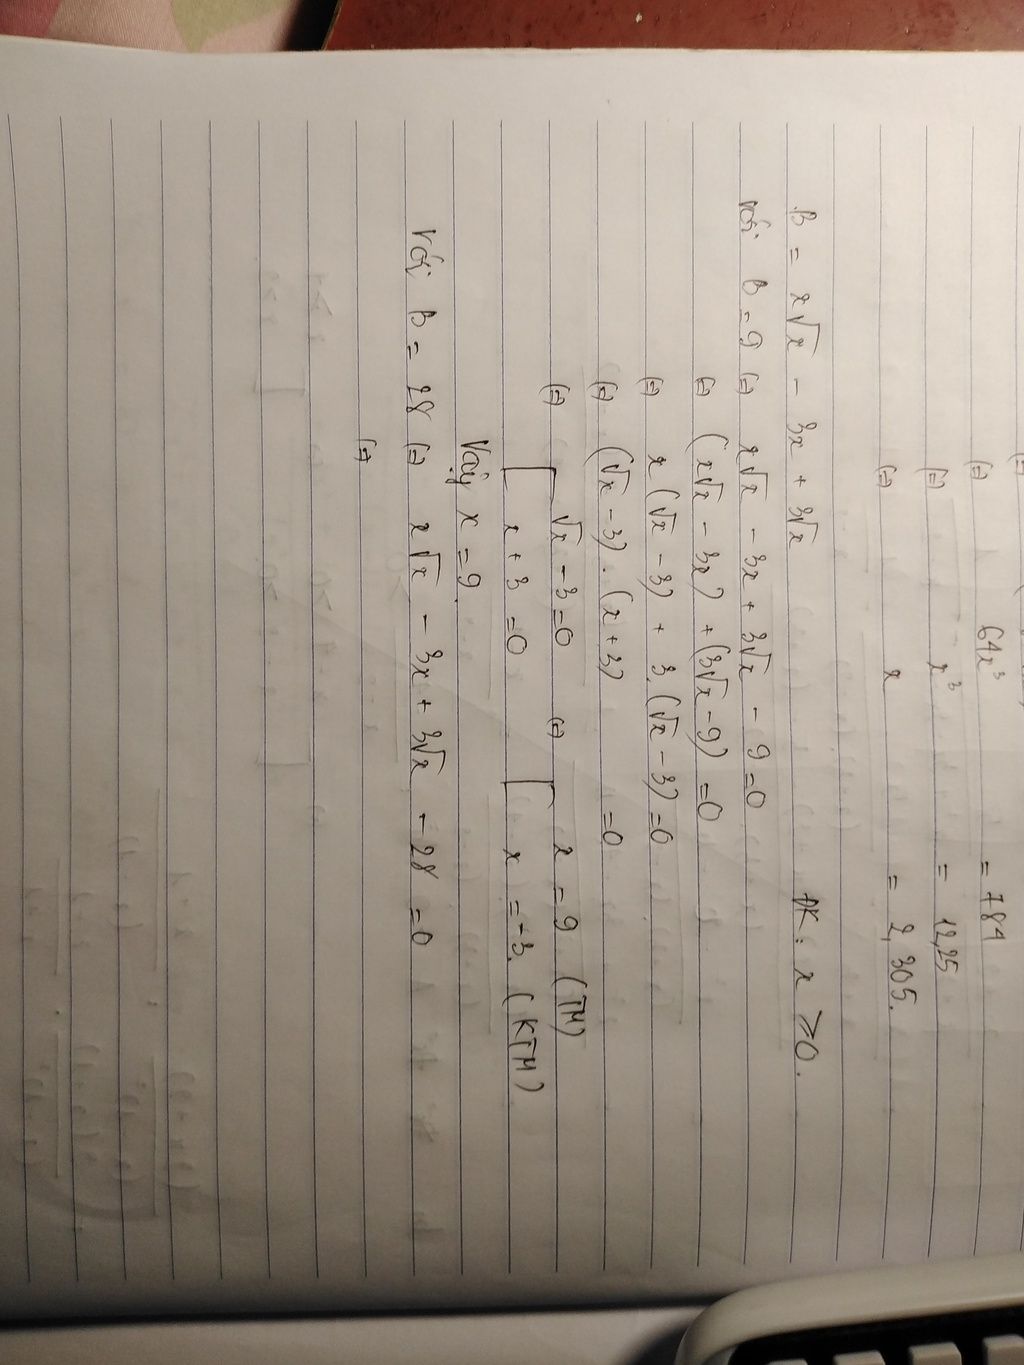 (=) 64x³ = 784
(=) x³ = 12,25
(=) x = 2,305.
B = x√x - 3x + 3√x ĐK: x ≥ 0.
Với B = 9 (=) x√x - 3x + 3√x - 9 = 0
(=) (x√x - 3x) + (3√x - 9) = 0
(=) x(√x - 3) + 3.(√x - 3) = 0
(=) (√x - 3).(x + 3) = 0
(=) [ √x - 3 = 0 (=) [ x = 9 (TM)
x + 3 = 0 x = -3. (KTM)
Vậy x = 9.
Với B = 28 (=) x√x - 3x + 3√x - 28 = 0
(=)